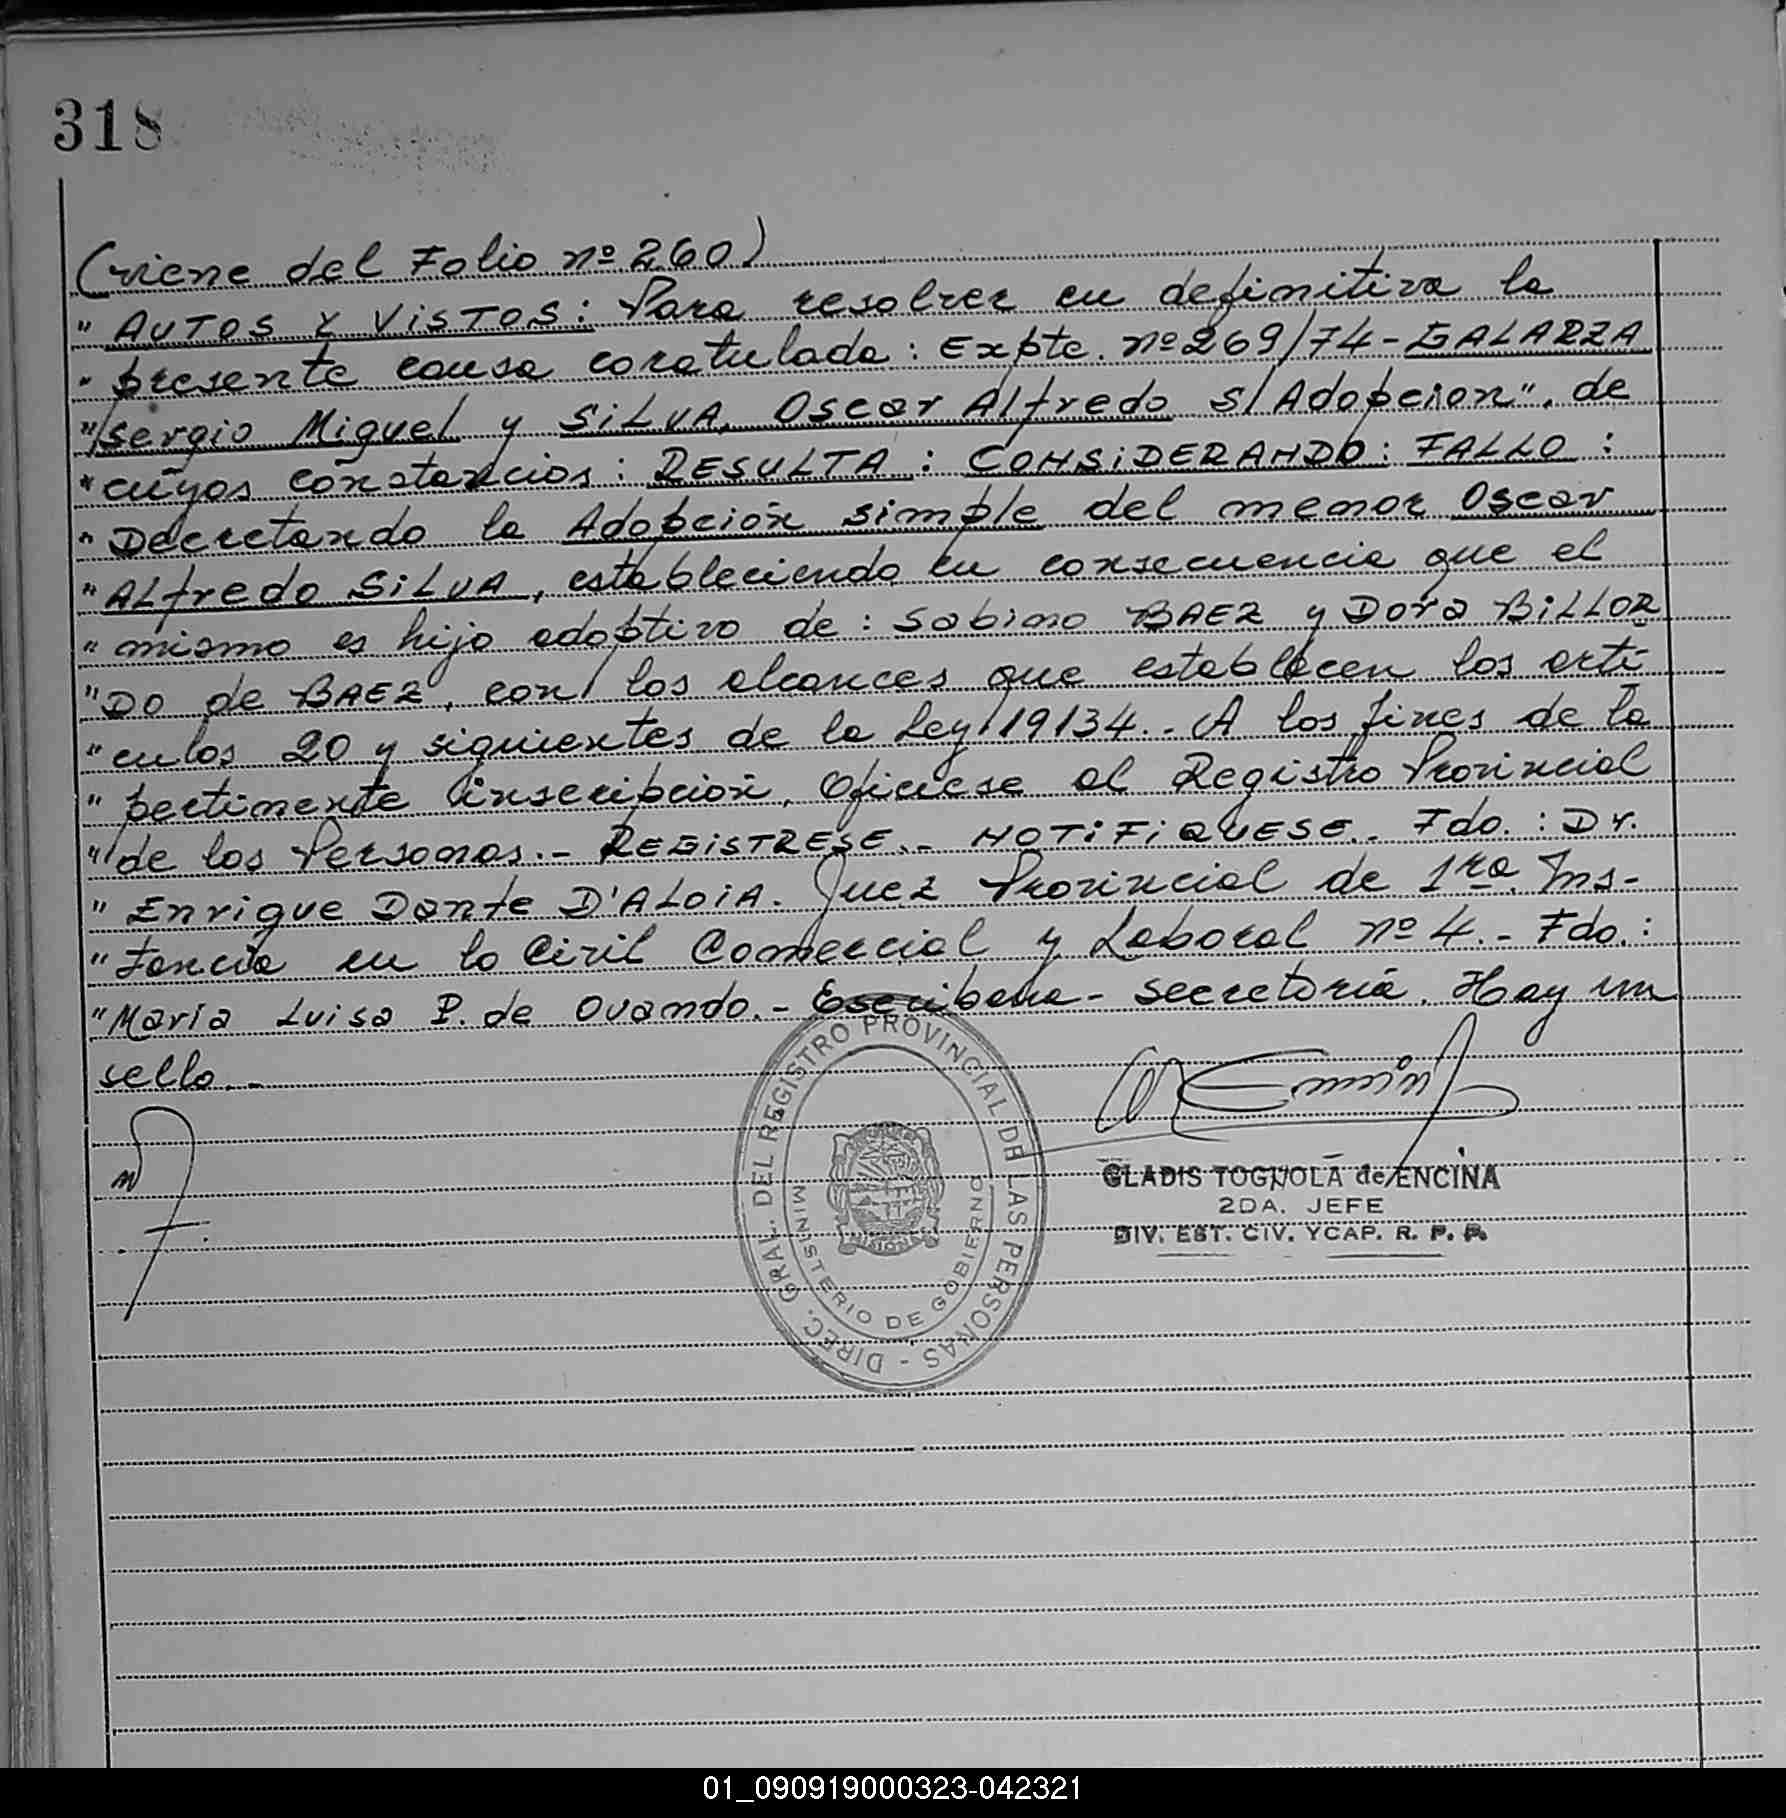 318
(viene del Folio nº 260)
" AUTOS Y VISTOS: Para resolver en definitiva la
" presente causa caratulada: Expte. nº 269/74- GALARZA
" Sergio Miguel y SILVA, Oscar Alfredo s/Adopcion", de
" cuyas constancias: RESULTA: CONSIDERANDO: FALLO:
" Decretando la Adopción simple del menor Oscar
" ALfredo SILVA, estableciendo en consecuencia que el
" mismo es hijo adoptivo de: Sabino BAEZ y Dora BILLOR
" DO de BAEZ, con los alcances que establecen los artí
" culos 20 y siguientes de la Ley 19134.- A los fines de la
" pertinente inscripción, Ofíciese al Registro Provincial
" de las Personas.- REGISTRESE.- NOTIFIQUESE.- Fdo.: Dr.
" Enrique Dante D'ALOIA. Juez Provincial de 1ra. Ins-
" tancia en lo Civil Comercial y Laboral nº 4.- Fdo.:
" María Luisa P. de Ovando.- Escribana- Secretaria. Hay un
sello.-
DIREC. GRAL. DEL REGISTRO PROVINCIAL DE LAS PERSONAS -
MINISTERIO DE GOBIERNO
MISIONES
GLADIS TOGNOLA de ENCINA
2DA. JEFE
DIV. EST. CIV. YCAP. R. P. P.
01_090919000323-042321